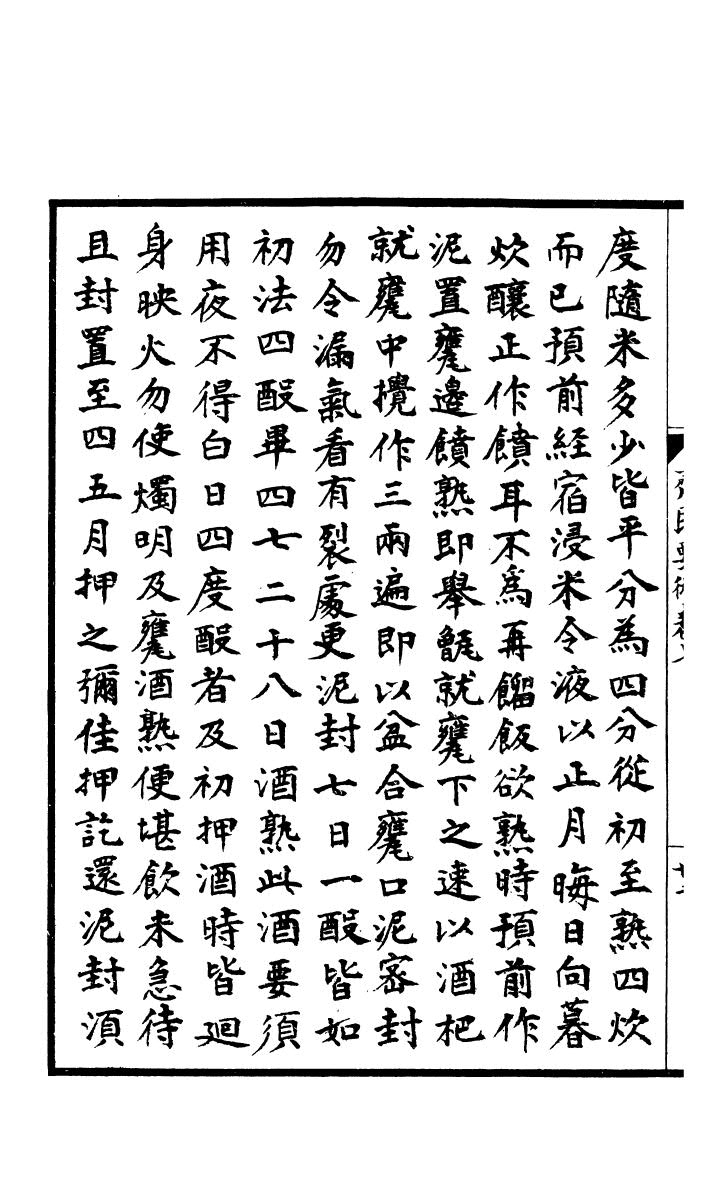 度隨米多少皆平分為四分從初至熟四炊
而已預前經宿浸米令液以正月晦日向暮
炊釀正作饙耳不爲再餾飯欲熟時預前作
泥置甕邊饙熟即舉甑就甕下之速以酒杷
就甕中攪作三兩遍即以盆合甕口泥密封
勿令漏氣看有裂處更泥封七日一酘皆如
初法四酘畢四七二十八日酒熟此酒要須
用夜不得白日四度酘者及初押酒時皆迴
身映火勿使燭明及甕酒熟便堪飲未急待
且封置至四五月押之彌佳押訖還泥封湏